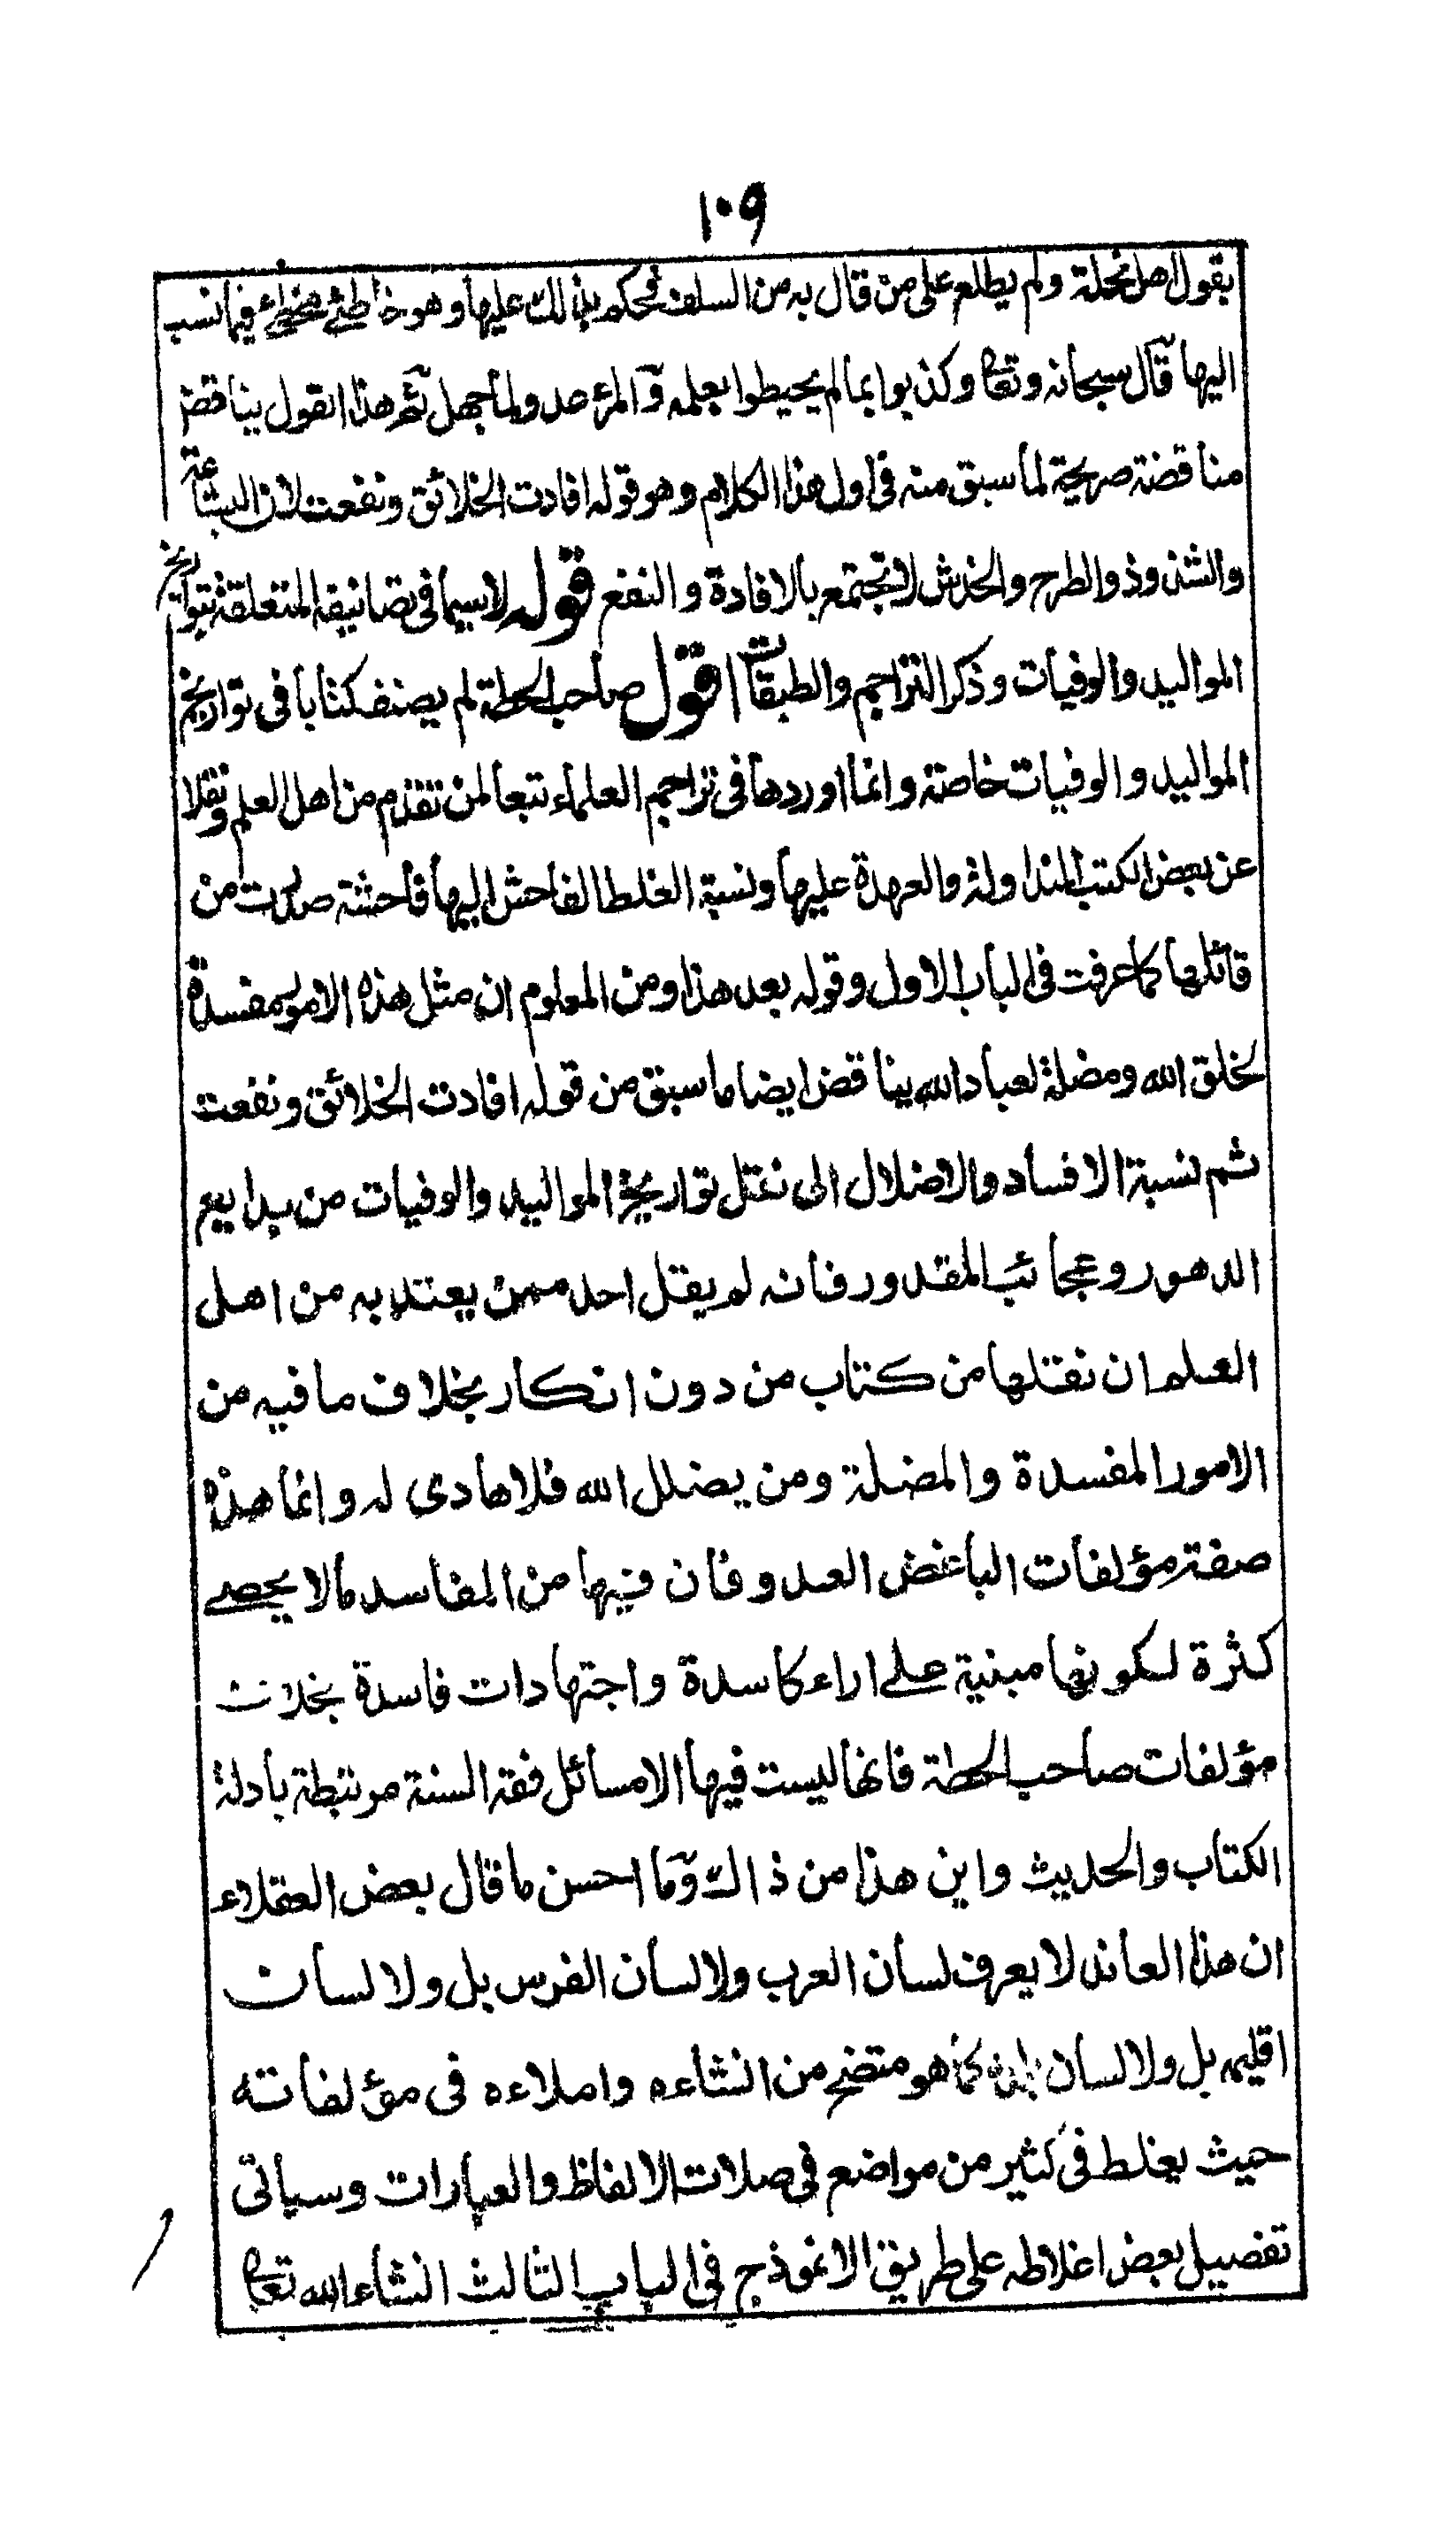 ١٠٩
بقول اهل نحلة ولم يطلع على من قال به من السلف فحكم بذالك عليها وهو خاطئ مخطئ فيما نسب
اليها قال سبحانه وتعالى وكذبوا بما لم يحيطوا بعلمه والمرء عدو لما جهل ثم هذا القول يناقض
مناقضة صريحة لما سبق منه في اول هذا الكلام وهو قوله افادت الخلائق ونفعت لان البشاعة
والشذوذ والطرح والخدش لا تجتمع بالافادة والنفع قوله لا سيما في تصانيفه المتعلقة بتواريخ
المواليد والوفيات وذكر التراجم والطبقات اقول صاحب الحطة لم يصنف كتابا في تواريخ
المواليد والوفيات خاصة وانما اوردها في تراجم العلماء تبعا لمن تقدم من اهل العلم ونقلا
عن بعض الكتب المتداولة والعهدة عليها ونسبة الغلط الفاحش اليها فاحشة صدرت من
قائلها كما عرفت في الباب الاول وقوله بعد هذا ومن المعلوم ان مثل هذه الامور مفسدة
لخلق الله ومضلة لعباد الله يناقض ايضا ما سبق من قوله افادت الخلائق ونفعت
ثم نسبة الافساد والاضلال الى نقل تواريخ المواليد والوفيات من بدايع
الدهور وعجائب المقدور فانه لم يقل احد ممن يعتد به من اهل
العلم ان نقلها من كتاب من دون انكار بخلاف ما فيه من
الامور المفسدة والمضلة ومن يضلل الله فلا هادى له وانما هذه
صفة مؤلفات الباغض العدو فان فيها من المفاسد مالا يحصے
كثرة لكونها مبنية علے اراء كاسدة واجتهادات فاسدة بخلاف
مؤلفات صاحب الحطة فانها ليست فيها الا مسائل فقه السنة مرتبطة بادلة
الكتاب والحديث واين هذا من ذالك وما احسن ما قال بعض العقلاء
ان هذا العاند لا يعرف لسان العرب ولا لسان الفرس بل ولا لسان
اقليمه بل ولا لسان بلده كما هو متضح من انشاءه واملاءه في مؤلفاته
حيث يغلط في كثير من مواضع في صلات الالفاظ والعبارات وسياتى
تفصيل بعض اغلاطه على طريق الانموذج في الباب الثالث انشاء الله تعالى